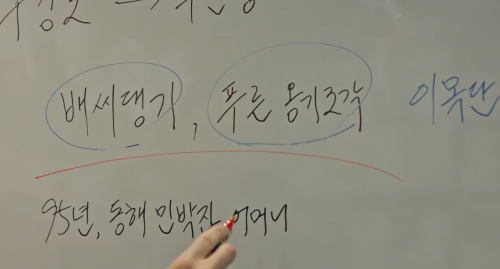 배씨댕기, 푸른 옹기조각 이목단
95년, 동해 민박집 어머니